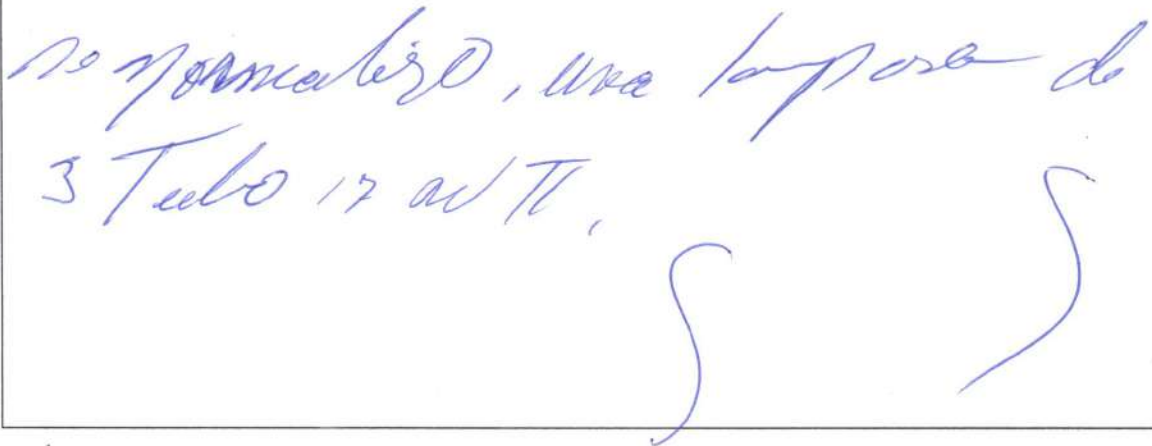 se normalizo, una lampara de
3 Tubo 17